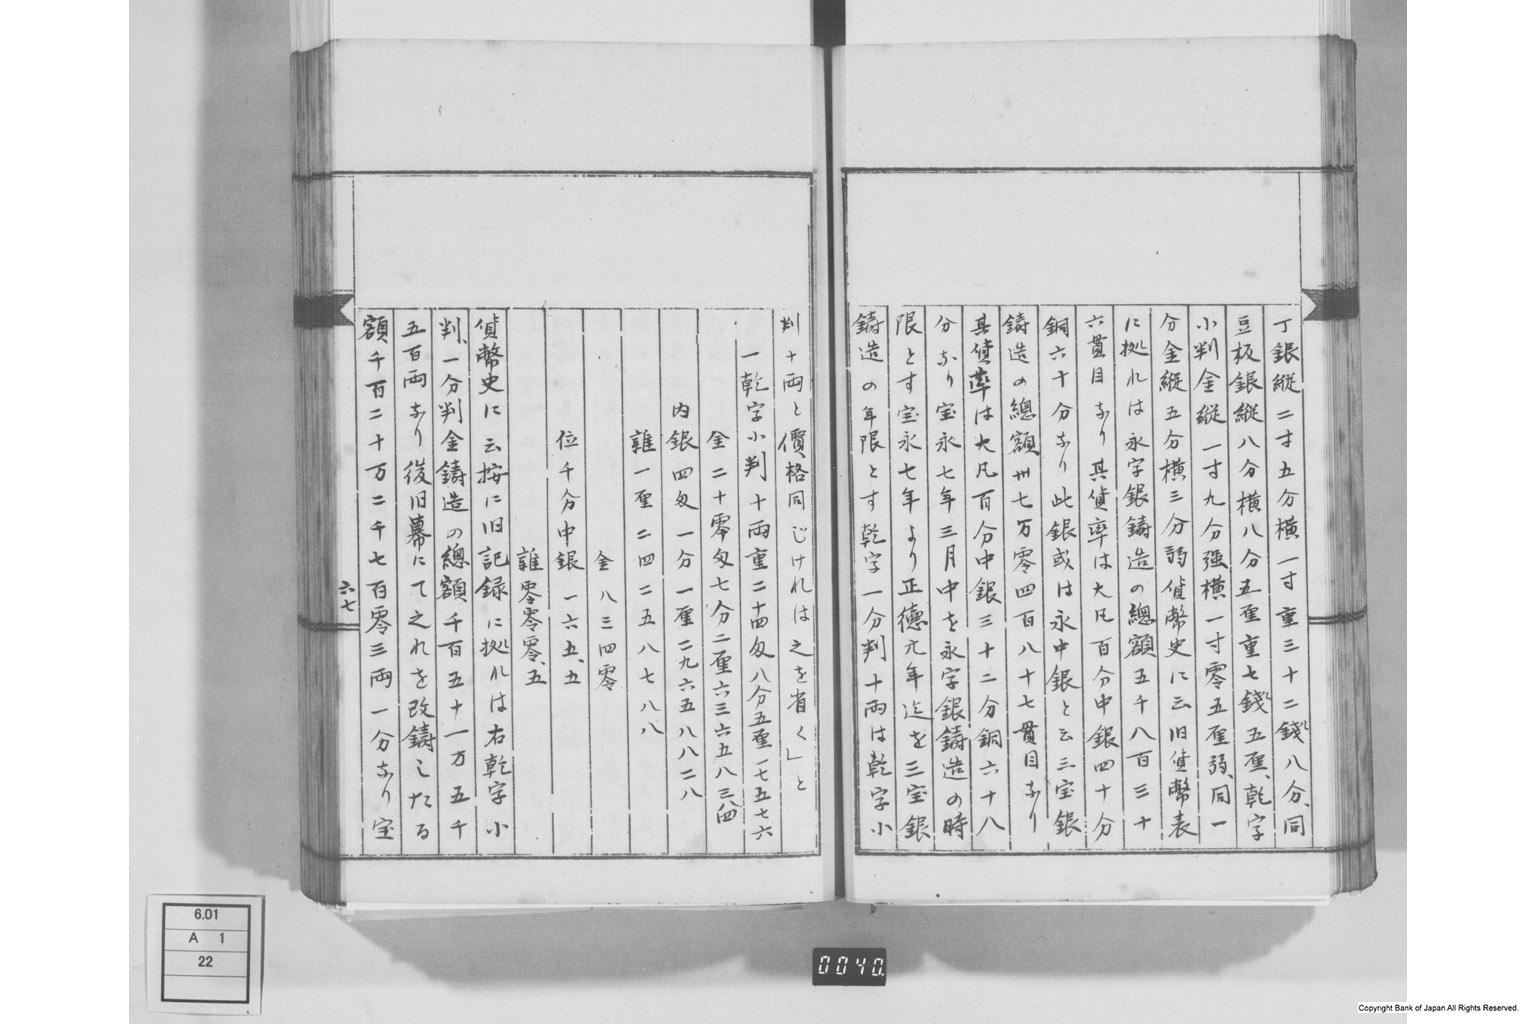 丁銀縦二寸五分横一寸重三十二錢八分、同
豆板銀縦八分横八分五厘重七錢五厘、乾字
小判金縦一寸九分强横一寸零五厘弱、同一
分金縦五分横三分弱貨幣史に云旧貨幣表
に拠れは永字銀鋳造の總額五千八百三十
六貫目なり其貨率は大凡百分中銀四十分
銅六十分なり此銀或は永中銀と云三宝銀
鋳造の總額卅七万零四百八十七貫目なり
其貨率は大凡百分中銀三十二分銅六十八
分なり宝永七年三月中を永字銀鋳造の時
限とす宝永七年より正徳元年迄を三宝銀
鋳造の年限とす乾字一分判十両は乾字小
判十両と價格同じけれは之を省く」と
一乾字小判十両重二十四匁八分五厘一七五七六
金二十零匁七分二厘六三六五八三八四
内銀四匁一分一厘二九六五八八二八
雜一厘二四二五八七八八
金八三四零
位千分中銀一六五、五
雜零零零、五
貨幣史に云按に旧記録に拠れは右乾字小
判、一分判金鋳造の總額千百五十一万五千
五百両なり後旧幕にて之れを改鋳したる
額千百二十万二千七百零三両一分なり宝
六七
6.01
A 1
22
0040.
Copyright Bank of Japan All Rights Reserved.